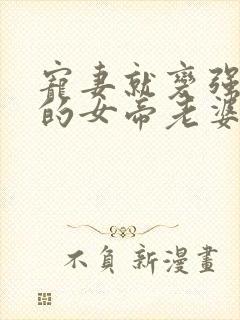 寵妻就變强
的女帝老婆
不負新漫畫